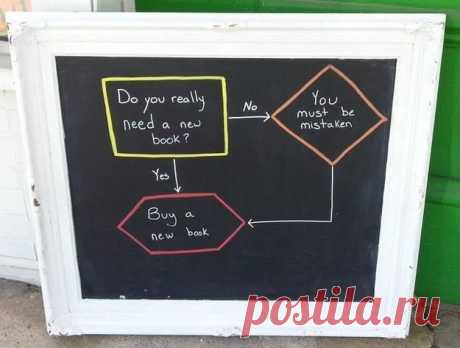 Do you really
need a new
book?
No
You
must be
mistaken
Yes
Buy a
new book
postila.ru